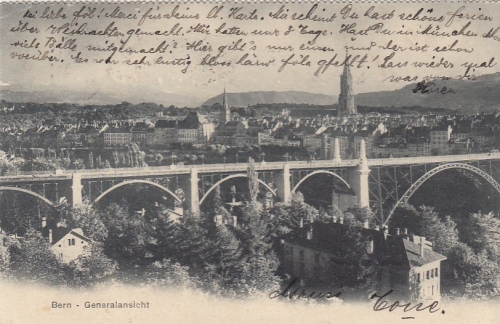 liebe föl! Merci für deine lb. Karte. Ma scheint Du hast schöne ferien
über Weihnachten gemacht. Mir hatten nur 8 Tage. Hast Du in München
viele Bälle mitgmacht? Hier gibt's nur einen und der ist schon
vorüber. Es war sehr lustig bloss han föle gfehlt! Las wieder mal
was von
hören
Bern - Generalansicht